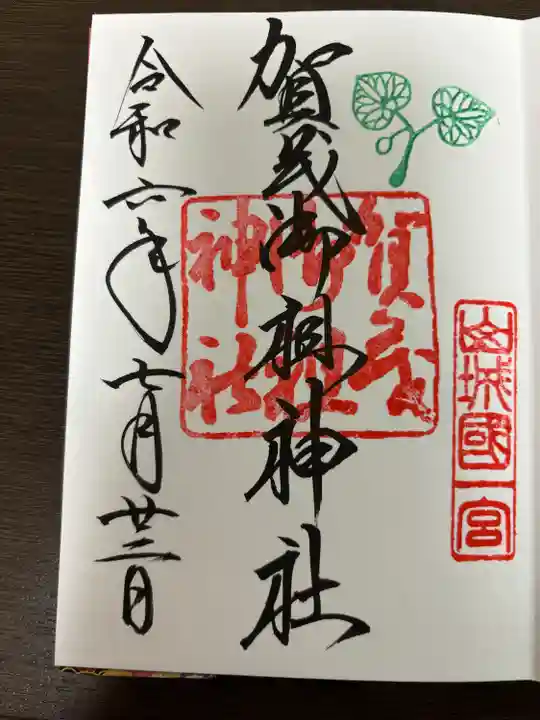 山城國一宮
賀茂御祖神社
賀茂御祖神社
令和六年七月廿三日